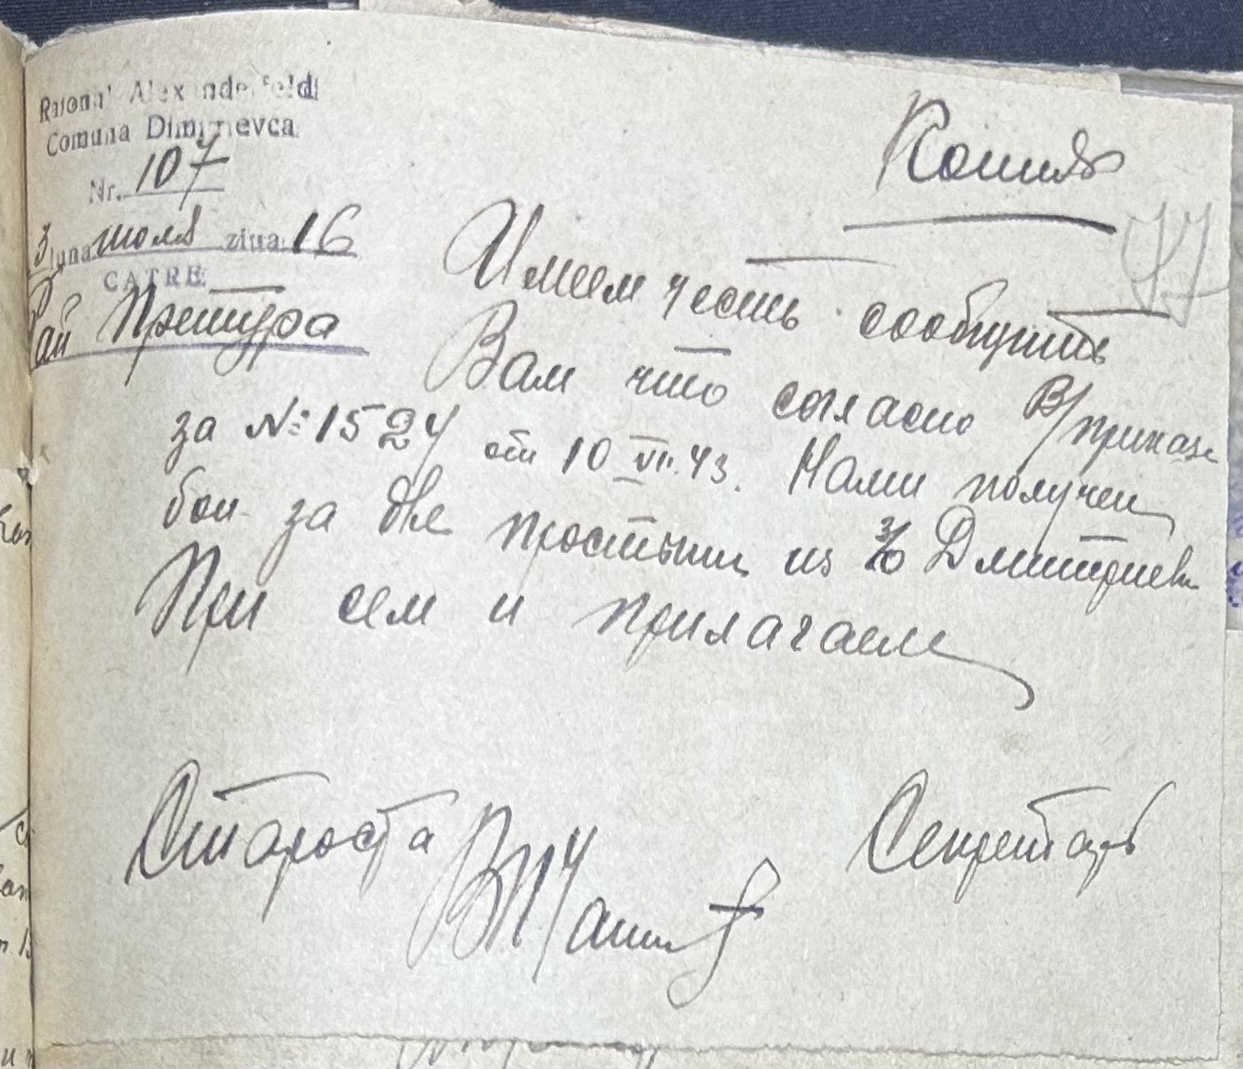 Raionul Alexanderfeld
Comuna Dimitrievca
Nr. 107
luna июля ziua 16
CATRE
Рай Претура
Копия
77
Имеем честь сообщить
Вам что согласно В/приказа
за №: 1524 от 10 VII. 43. Нами получен
бон за две простыни из Дмитриевки
При сем и прилагаем
Староста
Секретарь